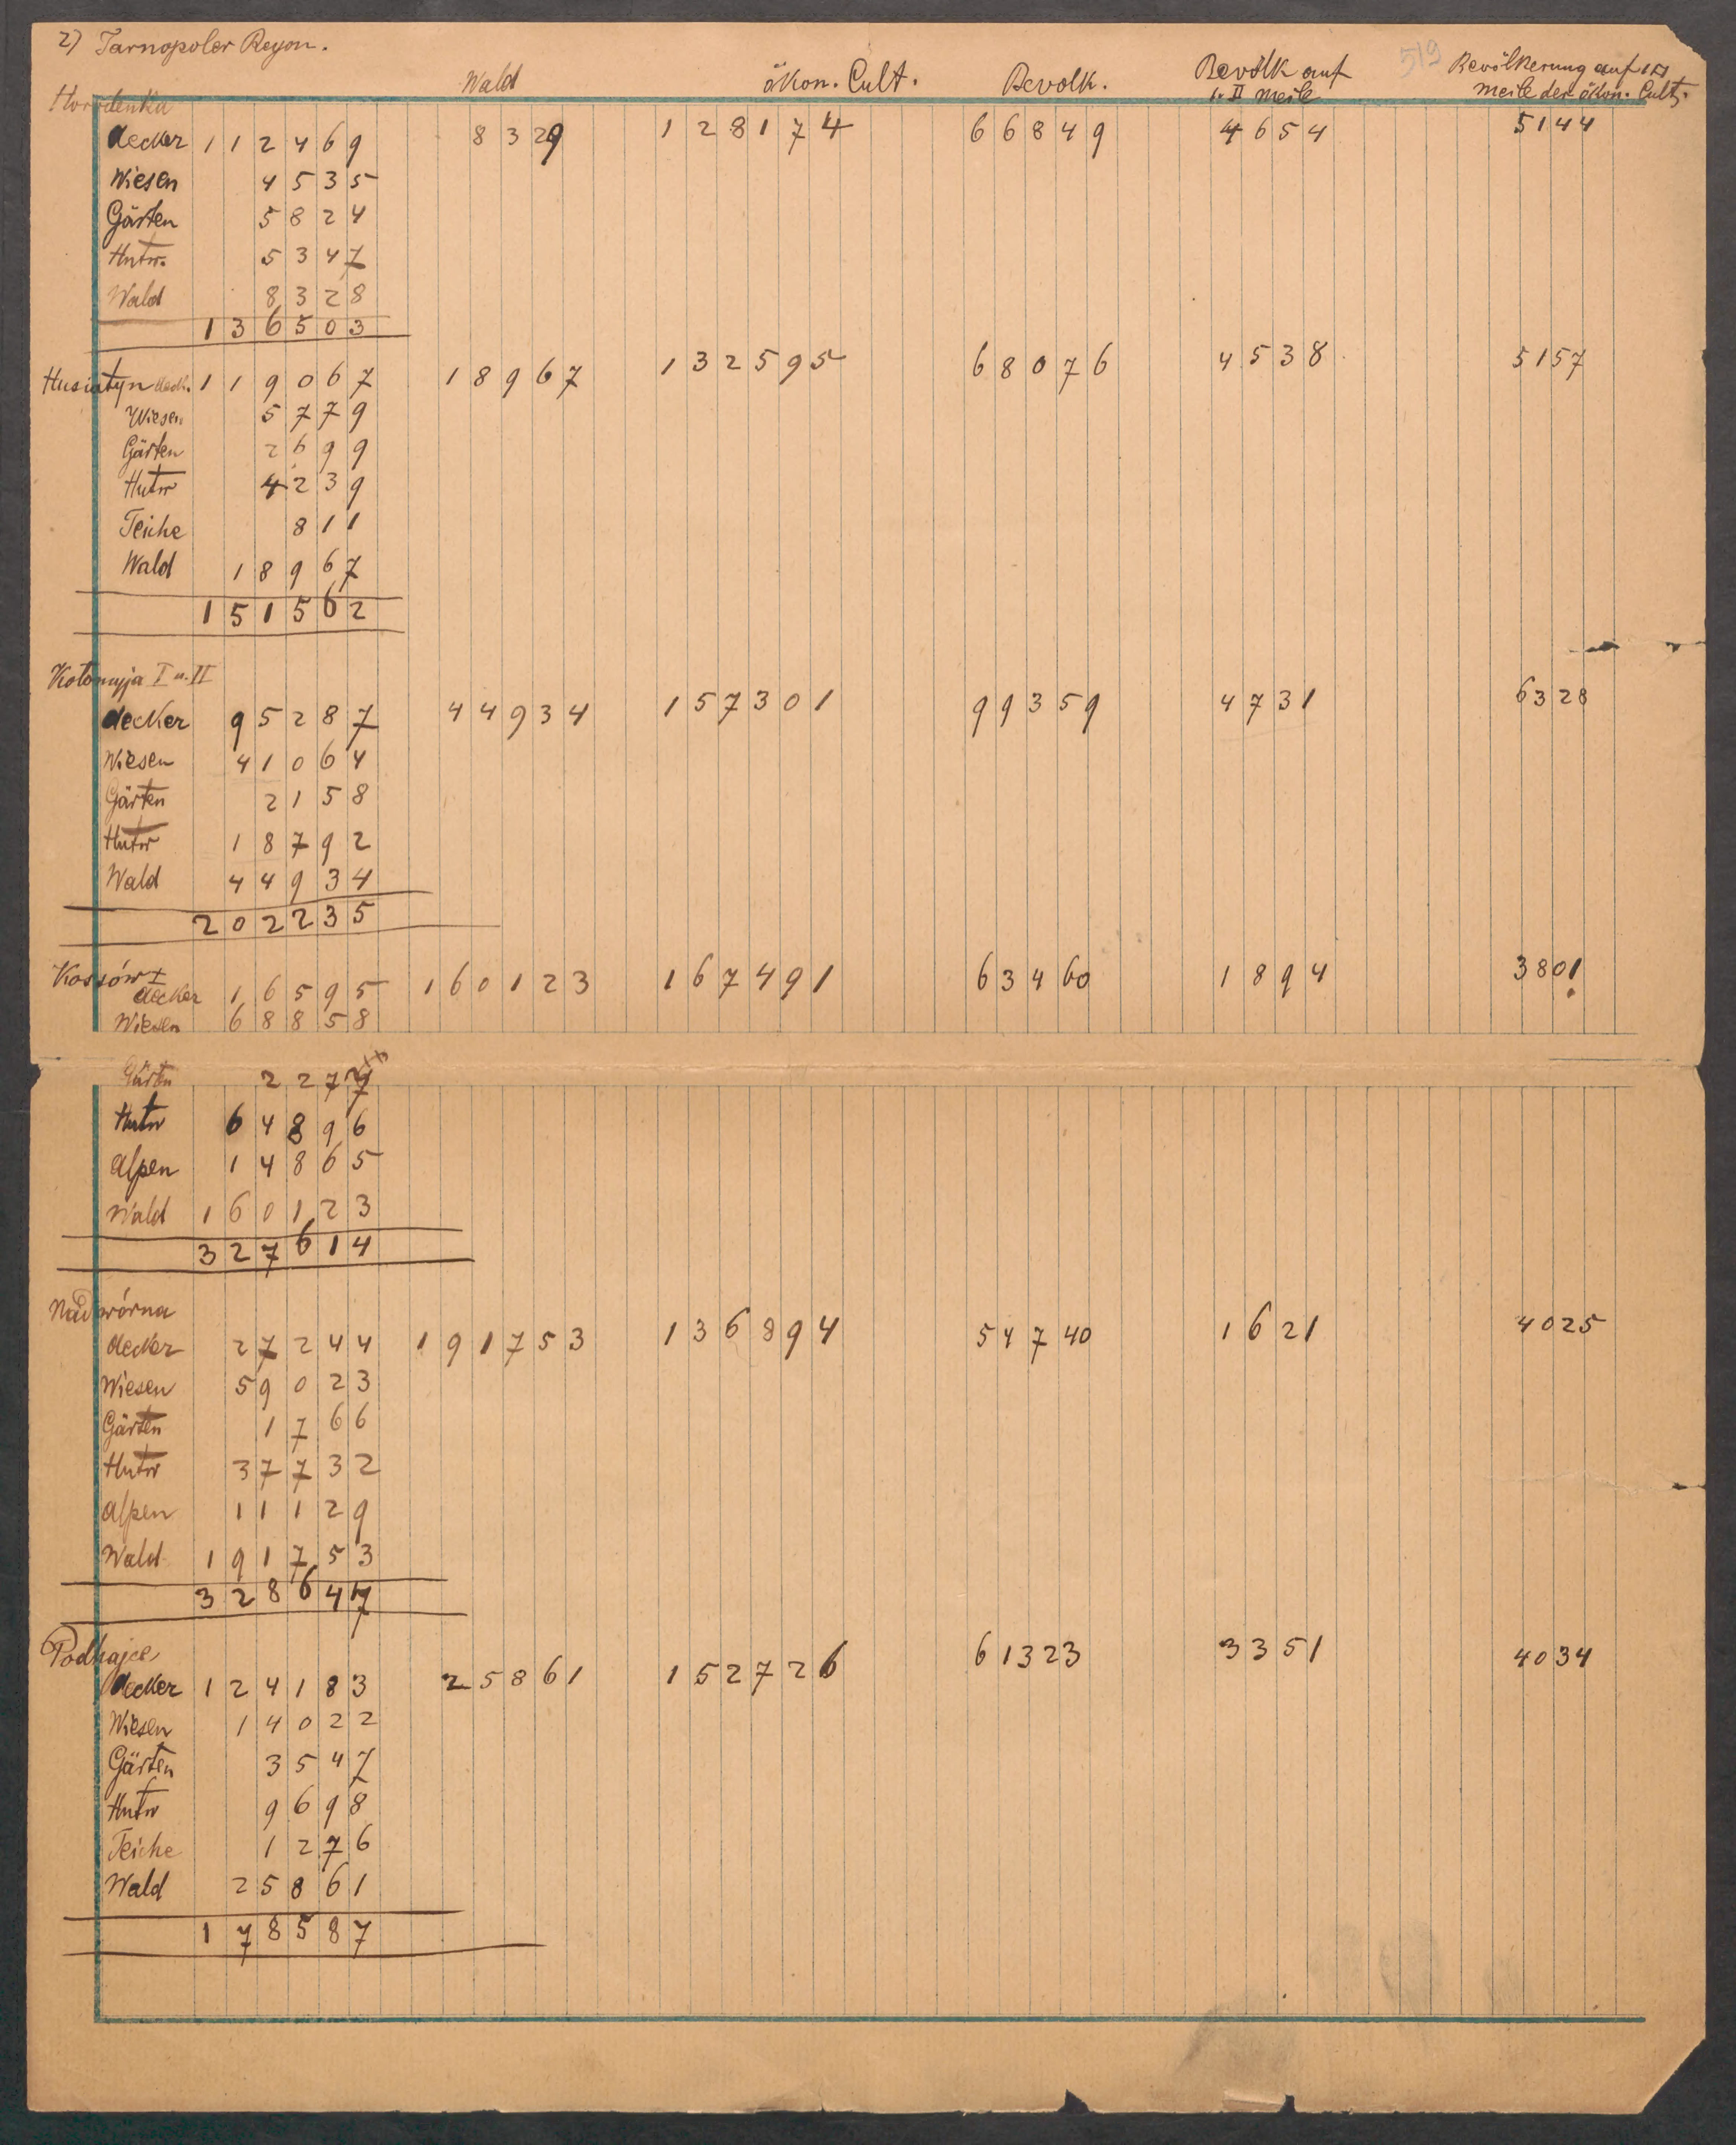 2) Tarnopoler Reyon.
519
Wald ökon. Cult. Bevölk. Bevölk auf 1. □ Meile Bevölkerung auf 1 □ Meile der ökon. Cult.
Horodenka
Aecker 112469 8329 128174 66849 4654 5144
Wiesen 4535
Gärten 5824
Hutw. 5347
Wald 8328
136503
Husiatyn Aeck. 119067 18967 132595 68076 4538 5157
Wiesen 5779
Gärten 2699
Hutw 4239
Teiche 811
Wald 18967
151562
Kołomyja I u. II
Aecker 95287 44934 157301 99359 4731 6328
Wiesen 41064
Gärten 2158
Hutw 18792
Wald 44934
202235
Kossów I
Aecker 16595 160123 167491 63460 1894 3801
Wiesen 68858
Gärten 2277
Hutw 64896
Alpen 14865
Wald 160123
327614
Nadwórna
Aecker 27244 191753 136894 54740 1621 4025
Wiesen 59023
Gärten 1766
Hutw 37732
Alpen 11129
Wald 191753
328647
Podhajce
Aecker 124183 25861 152726 61323 3351 4034
Wiesen 14022
Gärten 3547
Hutw 9698
Teiche 1276
Wald 25861
178587